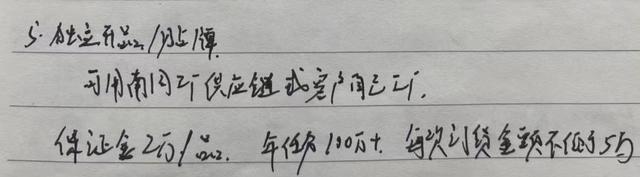 5. 独立开品/贴牌
可用南闪工厂供应链或客户自己工厂.
保证金2万/品. 年任务100万+. 每次订货金额不低于5万